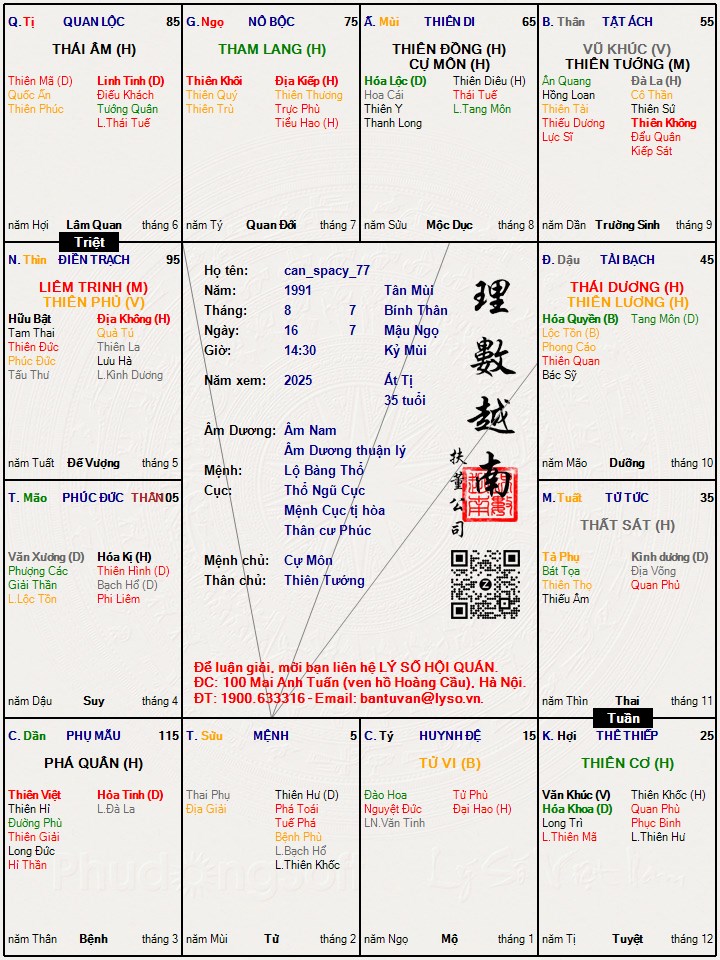 Q. Tị QUAN LỘC 85
THÁI ÂM (H)
Thiên Mã (D) Linh Tinh (D)
Quốc Ấn Điếu Khách
Thiên Phúc Tướng Quân
L.Thái Tuế
năm Hợi Lâm Quan tháng 6
G. Ngọ NÔ BỘC 75
THAM LANG (H)
Thiên Khôi Địa Kiếp (H)
Thiên Quý Thiên Thương
Thiên Trù Trực Phù
Tiểu Hao (H)
năm Tý Quan Đới tháng 7
Ấ. Mùi THIÊN DI 65
THIÊN ĐỒNG (H)
CỰ MÔN (H)
Hóa Lộc (D) Thiên Diêu (H)
Hoa Cái Thái Tuế
Thiên Y L.Tang Môn
Thanh Long
năm Sửu Mộc Dục tháng 8
B. Thân TẬT ÁCH 55
VŨ KHÚC (V)
THIÊN TƯỚNG (M)
Ân Quang Đà La (H)
Hồng Loan Cô Thần
Thiên Tài Thiên Sứ
Thiếu Dương Thiên Không
Lực Sĩ Đẩu Quân
Kiếp Sát
năm Dần Trường Sinh tháng 9
Triệt
N. Thìn ĐIỀN TRẠCH 95
LIÊM TRINH (M)
THIÊN PHỦ (V)
Hữu Bật Địa Không (H)
Tam Thai Quả Tú
Thiên Đức Thiên La
Phúc Đức Lưu Hà
Tấu Thư L.Kình Dương
năm Tuất Đế Vượng tháng 5
Họ tên: can_spacy_77
Năm: 1991 Tân Mùi
Tháng: 8 7 Bính Thân
Ngày: 16 7 Mậu Ngọ
Giờ: 14:30 Kỷ Mùi
Năm xem: 2025 Ất Tị
35 tuổi
Âm Dương: Âm Nam
Âm Dương thuận lý
Mệnh: Lộ Bàng Thổ
Cục: Thổ Ngũ Cục
Mệnh Cục tị hòa
Thân cư Phúc
Mệnh chủ: Cự Môn
Thân chủ: Thiên Tướng
理數越南
扶董公司
Để luận giải, mời bạn liên hệ LÝ SỐ HỘI QUÁN.
ĐC: 100 Mai Anh Tuấn (ven hồ Hoàng Cầu), Hà Nội.
ĐT: 1900.633316 - Email: bantuvan@lyso.vn.
Đ. Dậu TÀI BẠCH 45
THÁI DƯƠNG (H)
THIÊN LƯƠNG (H)
Hóa Quyền (B) Tang Môn (D)
Lộc Tồn (B)
Phong Cáo
Thiên Quan
Bác Sỹ
năm Mão Dưỡng tháng 10
T. Mão PHÚC ĐỨC THÂN 105
Văn Xương (D) Hóa Kị (H)
Phượng Các Thiên Hình (D)
Giải Thần Bạch Hổ (D)
L.Lộc Tồn Phi Liêm
năm Dậu Suy tháng 4
M. Tuất TỬ TỨC 35
THẤT SÁT (H)
Tả Phụ Kình dương (D)
Bát Tọa Địa Võng
Thiên Thọ Quan Phủ
Thiếu Âm
năm Thìn Thai tháng 11
Tuần
C. Dần PHỤ MẪU 115
PHÁ QUÂN (H)
Thiên Việt Hỏa Tinh (D)
Thiên Hỉ L.Đà La
Đường Phù
Thiên Giải
Long Đức
Hỉ Thần
năm Thân Bệnh tháng 3
T. Sửu MỆNH 5
Thai Phụ Thiên Hư (D)
Địa Giải Phá Toái
Tuế Phá
Bệnh Phù
L.Bạch Hổ
L.Thiên Khốc
năm Mùi Tử tháng 2
C. Tý HUYNH ĐỆ 15
TỬ VI (B)
Đào Hoa Tử Phù
Nguyệt Đức Đại Hao (H)
LN.Văn Tinh
năm Ngọ Mộ tháng 1
K. Hợi THÊ THIẾP 25
THIÊN CƠ (H)
Văn Khúc (V) Thiên Khốc (H)
Hóa Khoa (D) Quan Phù
Long Trì Phục Binh
L.Thiên Mã L.Thiên Hư
năm Tị Tuyệt tháng 12